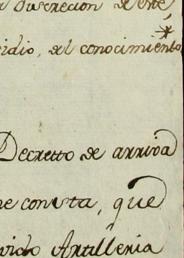 discrecion de este,
sidio, del conocimiento
Decretto de arriva
me consta, que
Artilleria